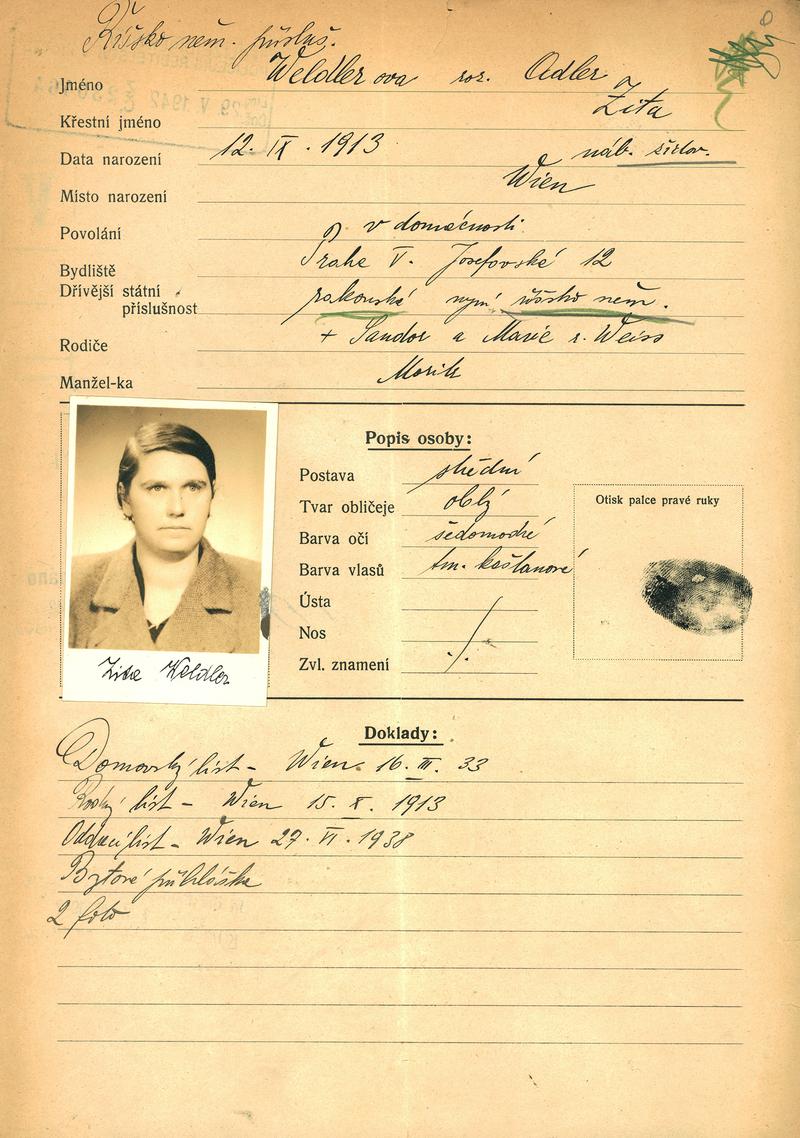 Říšsko něm. přísluš.
Jméno Weldlerova roz. Adler
Křestní jméno Zita
Data narození 12. IX. 1913 náb. židov.
Místo narození Wien
Povolání v domácnosti
Bydliště Praha V. Josefovská 12
Dřívější státní
příslušnost rakouská nyní říšsko něm.
Rodiče + Sandor a Marie r. Weiss
Manžel-ka Morik
Popis osoby:
Postava střední
Tvar obličeje oblý
Barva očí šedomodré
Barva vlasů tm. kaštanové
Ústa
Nos
Zvl. znamení
Otisk palce pravé ruky
Zita Weldler
Doklady:
Domovský list - Wien 16. III. 33
Rodný list - Wien 15. X. 1913
Oddací list - Wien 27. VI. 1938
Bytová přihláška
2 foto